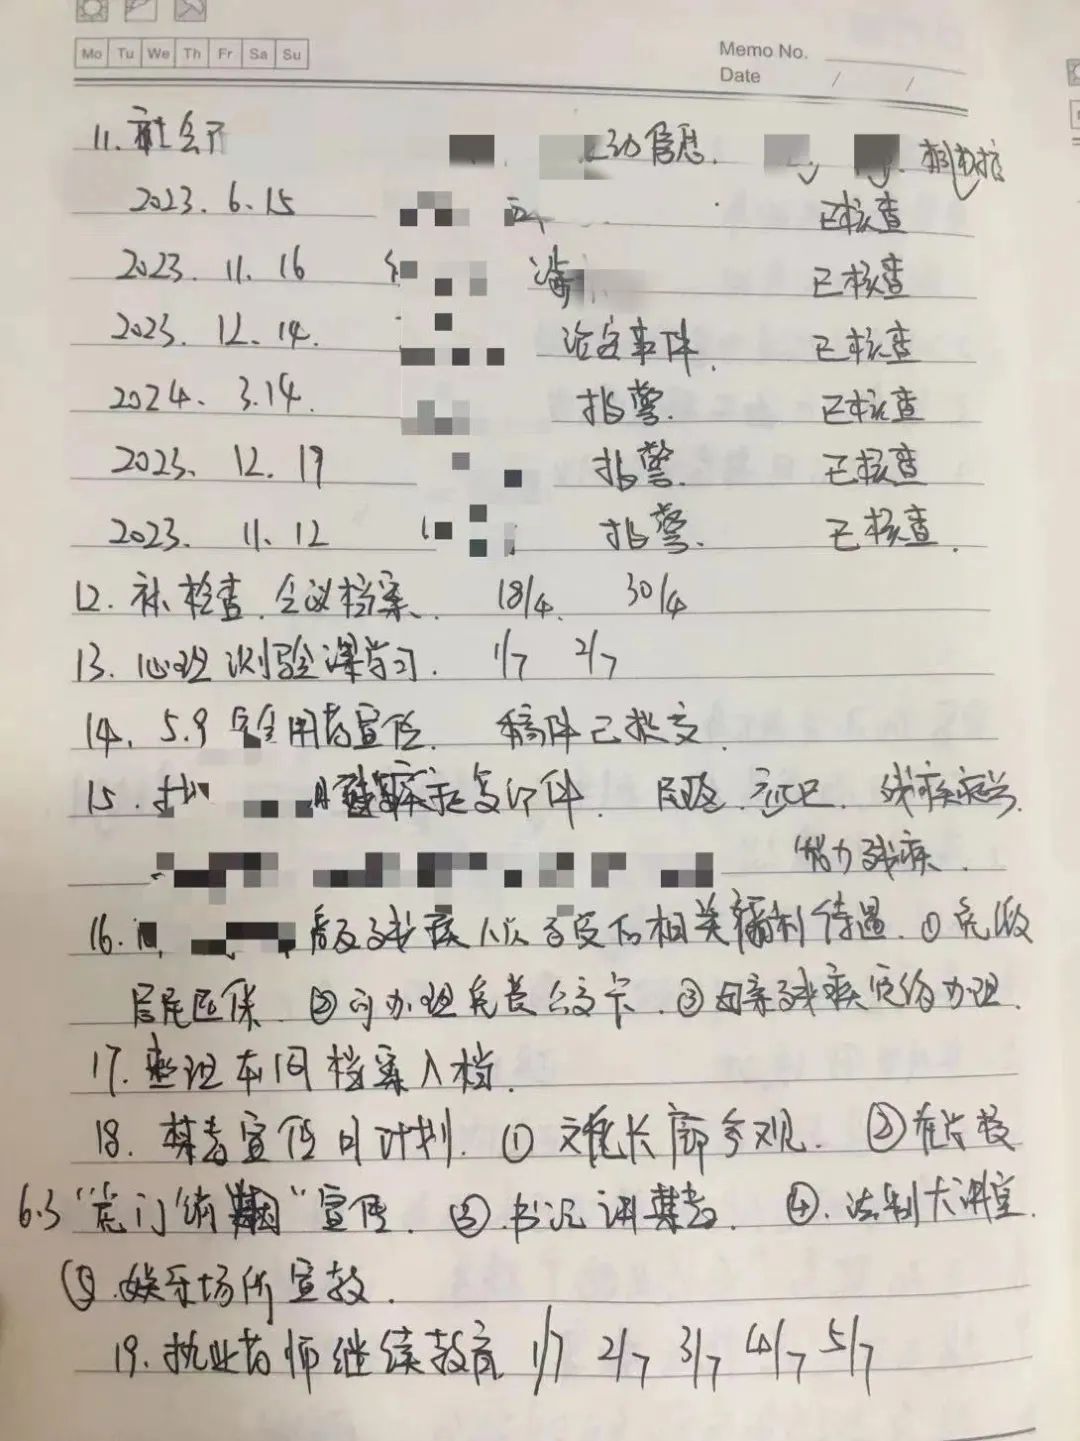 Mo Tu We Th Fr Sa Su
Memo No.
Date / /
11. 社会 动信息.
2023. 6. 15 已核查
2023. 11. 16 已核查
2023. 12. 14. 治安事件. 已核查
2024. 3.14. 报警. 已核查
2023. 12. 19 报警. 已核查
2023. 11. 12 报警. 已核查.
12. 补检查、会议档案、 18/4. 30/4
13. 心理测验课学习. 1/7 2/7
14. 5.9 安全用药宣传. 稿件已提交.
15. 残疾证复印件. 残疾
智力残疾.
16. 残疾人 享受的相关福利待遇. ① 免缴
居民医保. ②可办理免费公交卡. ③母亲残疾 办理.
17. 整理本周档案入档.
18. 禁毒宣传月计划. ① 文化长廊参观. ②
6.3 "虎门销烟" 宣传. ③. 书记讲禁毒. ④. 法制大讲堂.
⑤. 娱乐场所宣教.
19. 执业药师继续教育 1/7 2/7 3/7 4/7 5/7